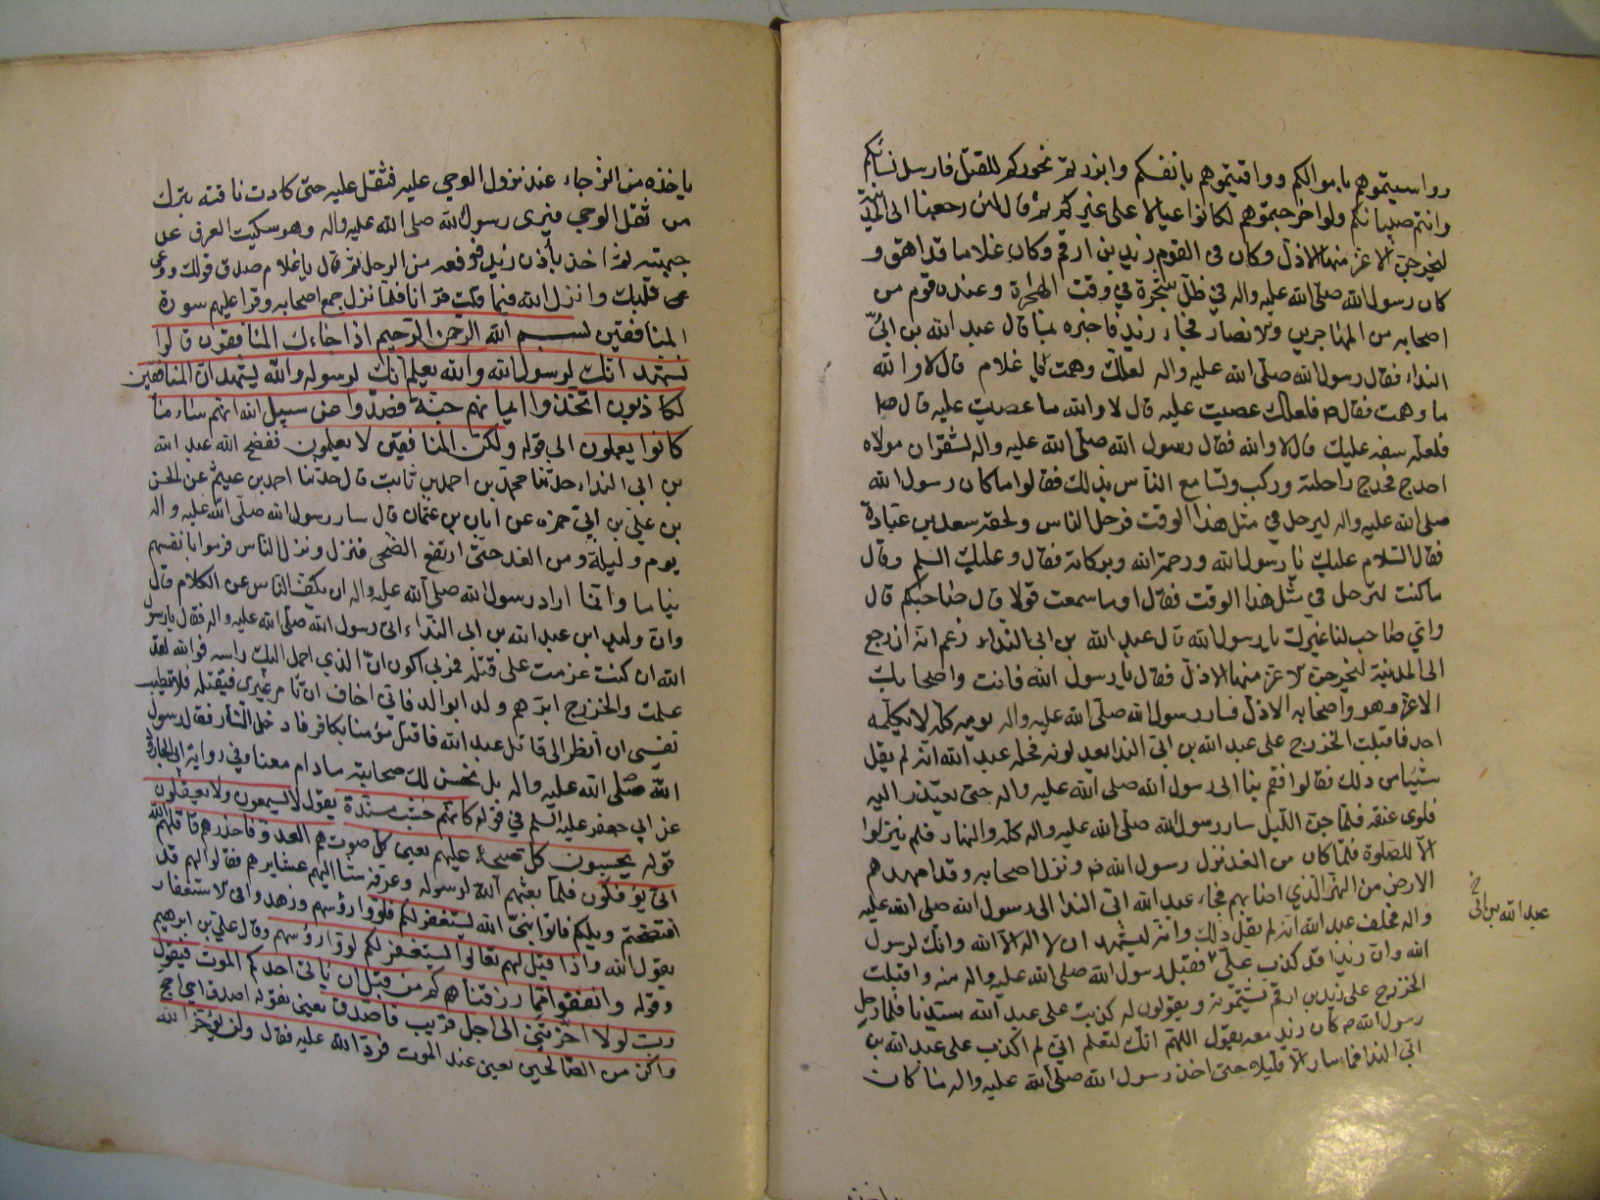 وواسيتموهم باموالكم ووواقيتموهم بانفسكم وابرزتم نحوركم للقتل فارسل نسائكم
وايتم صبيانكم ولو اخرجتموهم لكانوا عيالا على غيركم ثم قال لئن رجعنا الى المدينة
ليخرجن الاعز منها الاذل وكان في القوم زيد بن ارقم وكان غلاما قد راهق و
كان رسول الله صلى الله عليه واله في ظل شجرة في وقت الهاجرة وعنده قوم من
اصحابه من المهاجرين والانصار فجاء زيد فاخبره بما قال عبد الله بن ابيّ
النداء فقال رسول الله صلى الله عليه واله لعلك وهمت يا غلام قال لا والله
ما وهمت فقال فلعلك غضبت عليه قال لا والله ما غضبت عليه قال
فلعله سفه عليك قال لا والله فقال رسول الله صلى الله عليه واله لشقران مولاه
احدج فحدج راحلته وركب وتسامع الناس بذلك فقالوا ما كان رسول الله
صلى الله عليه واله ليرحل في مثل هذا الوقت فرحل الناس ولحقه سعد بن عبادة
فقال السلام عليك يا رسول الله ورحمة الله وبركاته فقال وعليك السلم وقال
ما كنت لترحل في مثل هذا الوقت فقال اوما سمعت قولا قال صاحبكم قال
واي صاحب لنا غيرك يا رسول الله قال عبد الله بن ابي النداء زعم انه ان رجع
الى المدينة ليخرجن الاعز منها الاذل فقال يا رسول الله فانت واصحابك
الاعز وهو واصحابه الاذل فسار رسول الله صلى الله عليه واله يومه كله لا يكلمه
احد فاقبلت الخزرج على عبد الله بن ابي النداء يعذلونه فحلف عبد الله انه لم يقل
شيئا من ذلك فقالوا فقم بنا الى رسول الله صلى الله عليه واله حتى يعتذر اليه
فلوى عنقه فلما جن الليل سار رسول الله صلى الله عليه واله كله والنهار فلم ينزلوا
الا للصلوة فلما كان من الغد نزل رسول الله ونزل اصحابه وقد امهدهم
الارض من السهر الذي اصابهم فجاء عبد الله ابي الندا الى رسول الله صلى الله عليه
واله فحلف عبد الله انه لم يقل ذلك وانه ليشهد ان لا اله الا الله وانك لرسول
الله وان زيدا قد كذب عليّ فقبل رسول الله صلى الله عليه واله منه واقبلت
الخزرج على زيد بن ارقم يشتمونه ويقولون له كذبت على عبد الله سيدنا فلما رحل
رسول الله كان زيد معه يقول اللهم انك لتعلم اني لم اكذب على عبد الله بن
ابي الندا فما سار الا قليلا حتى اخذ رسول الله صلى الله عليه واله ما كان
عبد الله بن ابي خ
ياخذه من الزجاء عند نزول الوحي عليه فثقل عليه حتى كادت ناقته يترك
من ثقل الوحي فسرى رسول الله صلى الله عليه واله وهو سكيت العرق عن
جبهته ثم اخذ باذن زيد فرفعه من الرحل ثم قال يا غلام صدق قولك ووعى
قلبك وانزل الله فيما قلت قرانا فلما نزل جمع اصحابه وقرا عليهم سورة
المنافقين بسم الله الرحمن الرحيم اذا جاءك المنافقون قالوا
نشهد انك لرسول الله والله يعلم انك لرسوله والله يشهد ان المنافقين
لكاذبون اتخذوا ايمانهم جنة فصدوا عن سبيل الله انهم ساء ما
كانوا يعملون الى قوله ولكن المنافقين لا يعلمون ففضح الله عبد الله
بن ابي النداء حدثنا محمد بن احمد بن ثابت قال حدثنا احمد بن عن الحسن
بن علي بن ابي حمزه عن ابان بن عثمان قال سار رسول الله صلى الله عليه واله
يوم وليلة ومن الغد حتى ارتفع الضحى فنزل ونزل الناس فرموا بانفسهم
نياما وانما اراد رسول الله صلى الله عليه واله ان يكف الناس عن الكلام قال
وان وليد ابن عبد الله بن ابي النداء اتى رسول الله صلى الله عليه واله فقال يا رسول
الله ان كنت عزمت على قتله فمرني اكون انا الذي احمل اليك راسه فوالله لقد
علمت والخزرج ابرهم ولد ابوالد فاني اخاف ان تامر غيري فيقتله فلا تطيب
نفسي ان انظر الى قاتل عبد الله فاقتل مؤمنا بكافر فادخل النار فقال رسول
الله صلى الله عليه واله بل نحسن لك صحابته مادام معنا وفي رواية ابي الجارود
عن ابي جعفر عليه السلم في قوله كانهم خشب مسندة يقول لا يسمعون ولا يعقلون
قوله يحسبون كل صيحة عليهم يعني كل صوت هم العدو فاحذرهم قاتلهم الله
انى يؤفكون فلما نعتهم الله لرسوله وعرفه مشا اليهم عشايرهم فقالوا لهم قد
افتضحتم ويلكم فاتوا نبي الله يستغفر لكم فلووا رؤسهم وزهدوا في الاستغفار
يقول الله واذا قيل لهم تعالوا يستغفر لكم لووا رؤسهم وقال علي بن ابرهيم
وقوله وانفقوا مما رزقناكم من قبل ان ياتي احدكم الموت فيقول
رب لولا اخرتني الى اجل قريب فاصدق يعني بقوله اصدق اي احج
واكن من الصالحين يعني عند الموت فرد الله عليه فقال ولن يؤخر الله